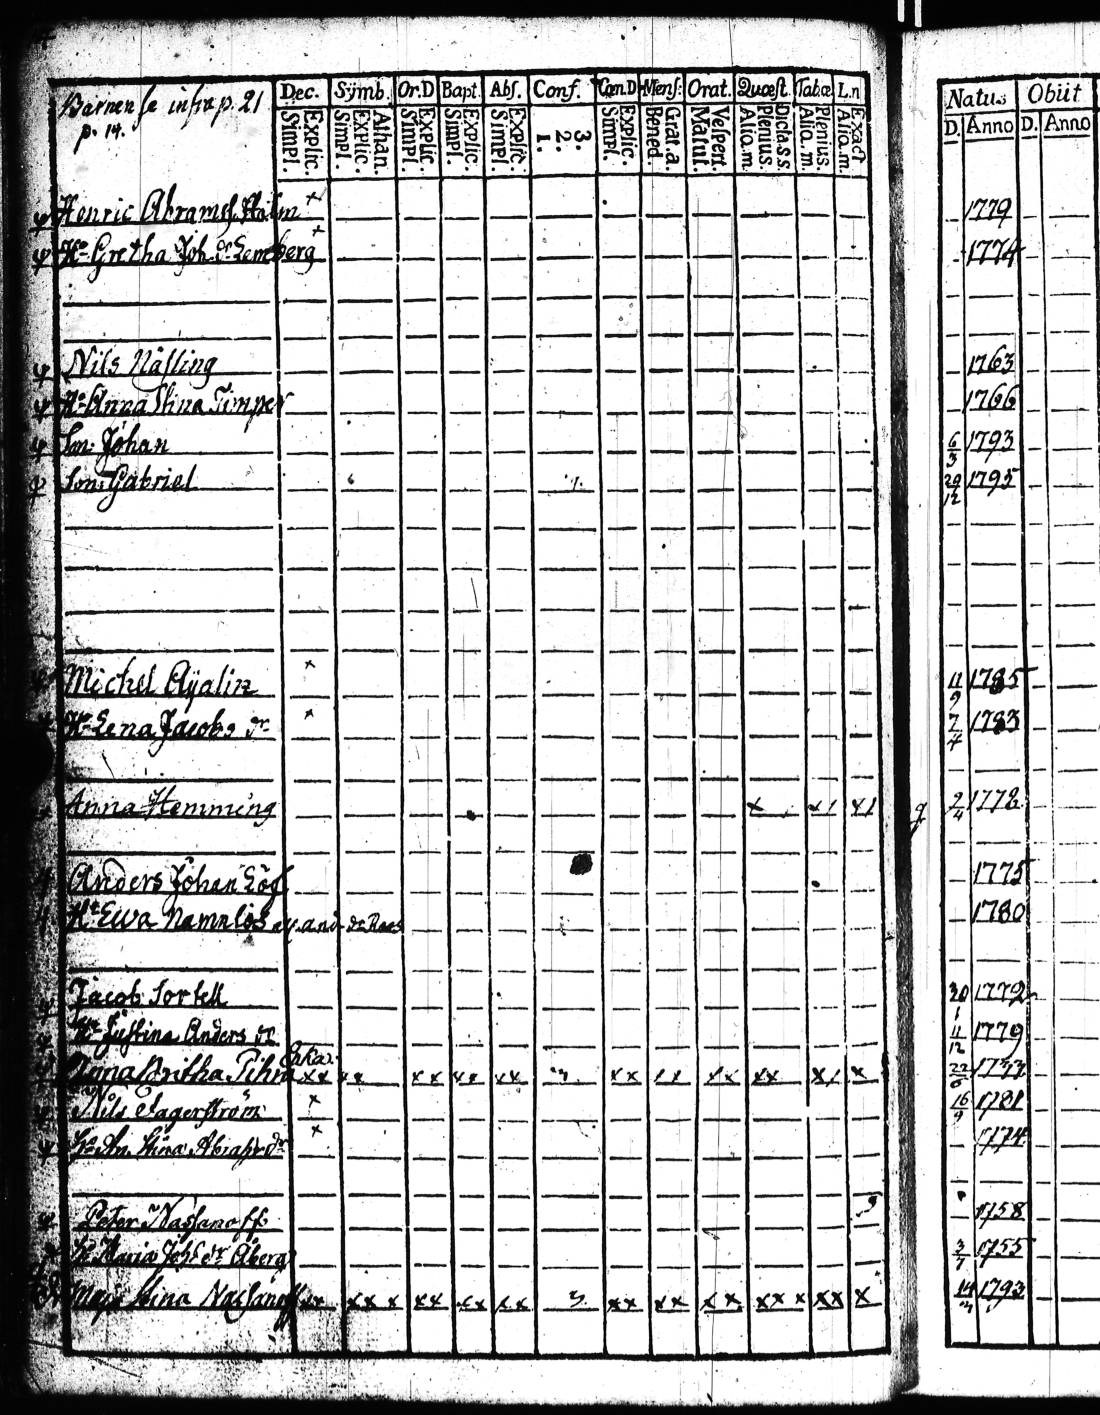 Barnen se infra p. 21
p. 14.
Dec. Symb. Or.D Bapt. Abs. Conf. Cœn.D Mens: Orat. Quœst. Tabœ L.n
Simpl. Explic. Simpl. Explic. Athan. Simpl. Explic. Simpl. Explic. Simpl. Explic. 1. 2. 3. Simpl. Explic. Bened. Grat.a. Matut. Vespert. Aliq.m. Plenius. Dicta s.s. Aliq.m. Plenius. Aliq.m. Exact
Natus Obiit
D. Anno D. Anno
Henric Abramss. Holm + 1779
Hu Gretha Joh. dr Lemberg + 1774
Nils Nässling 1763
Hu Anna Stina Timper 1766
Son: Johan 6/3 1793
Son: Gabriel 29/12 1795
Michel Ayalin + 11/9 1785
Hu Lena Jacobs dr + 7/4 1783
Anna Hemming x x1 x1 2/4 1778
Anders Johan Löf 1775
Hu Ewa Namnlös 1780
Jacob Sortell 20/1 1772
Hu Justina Anders dr 11/12 1779
Anna Britha xx xx xx xx xx 3 xx xx xx x1 x
Nils Fagerström + 16/9 1781
Hu An. Stina + 1774
Peter Nassanoff 1758
Hu Maria Joh dr Åberg 3/7 1755
Maja Stina Nassanoff xx xx x xx xx xx 3. xx xx xx xx x xx x 14/3 1793